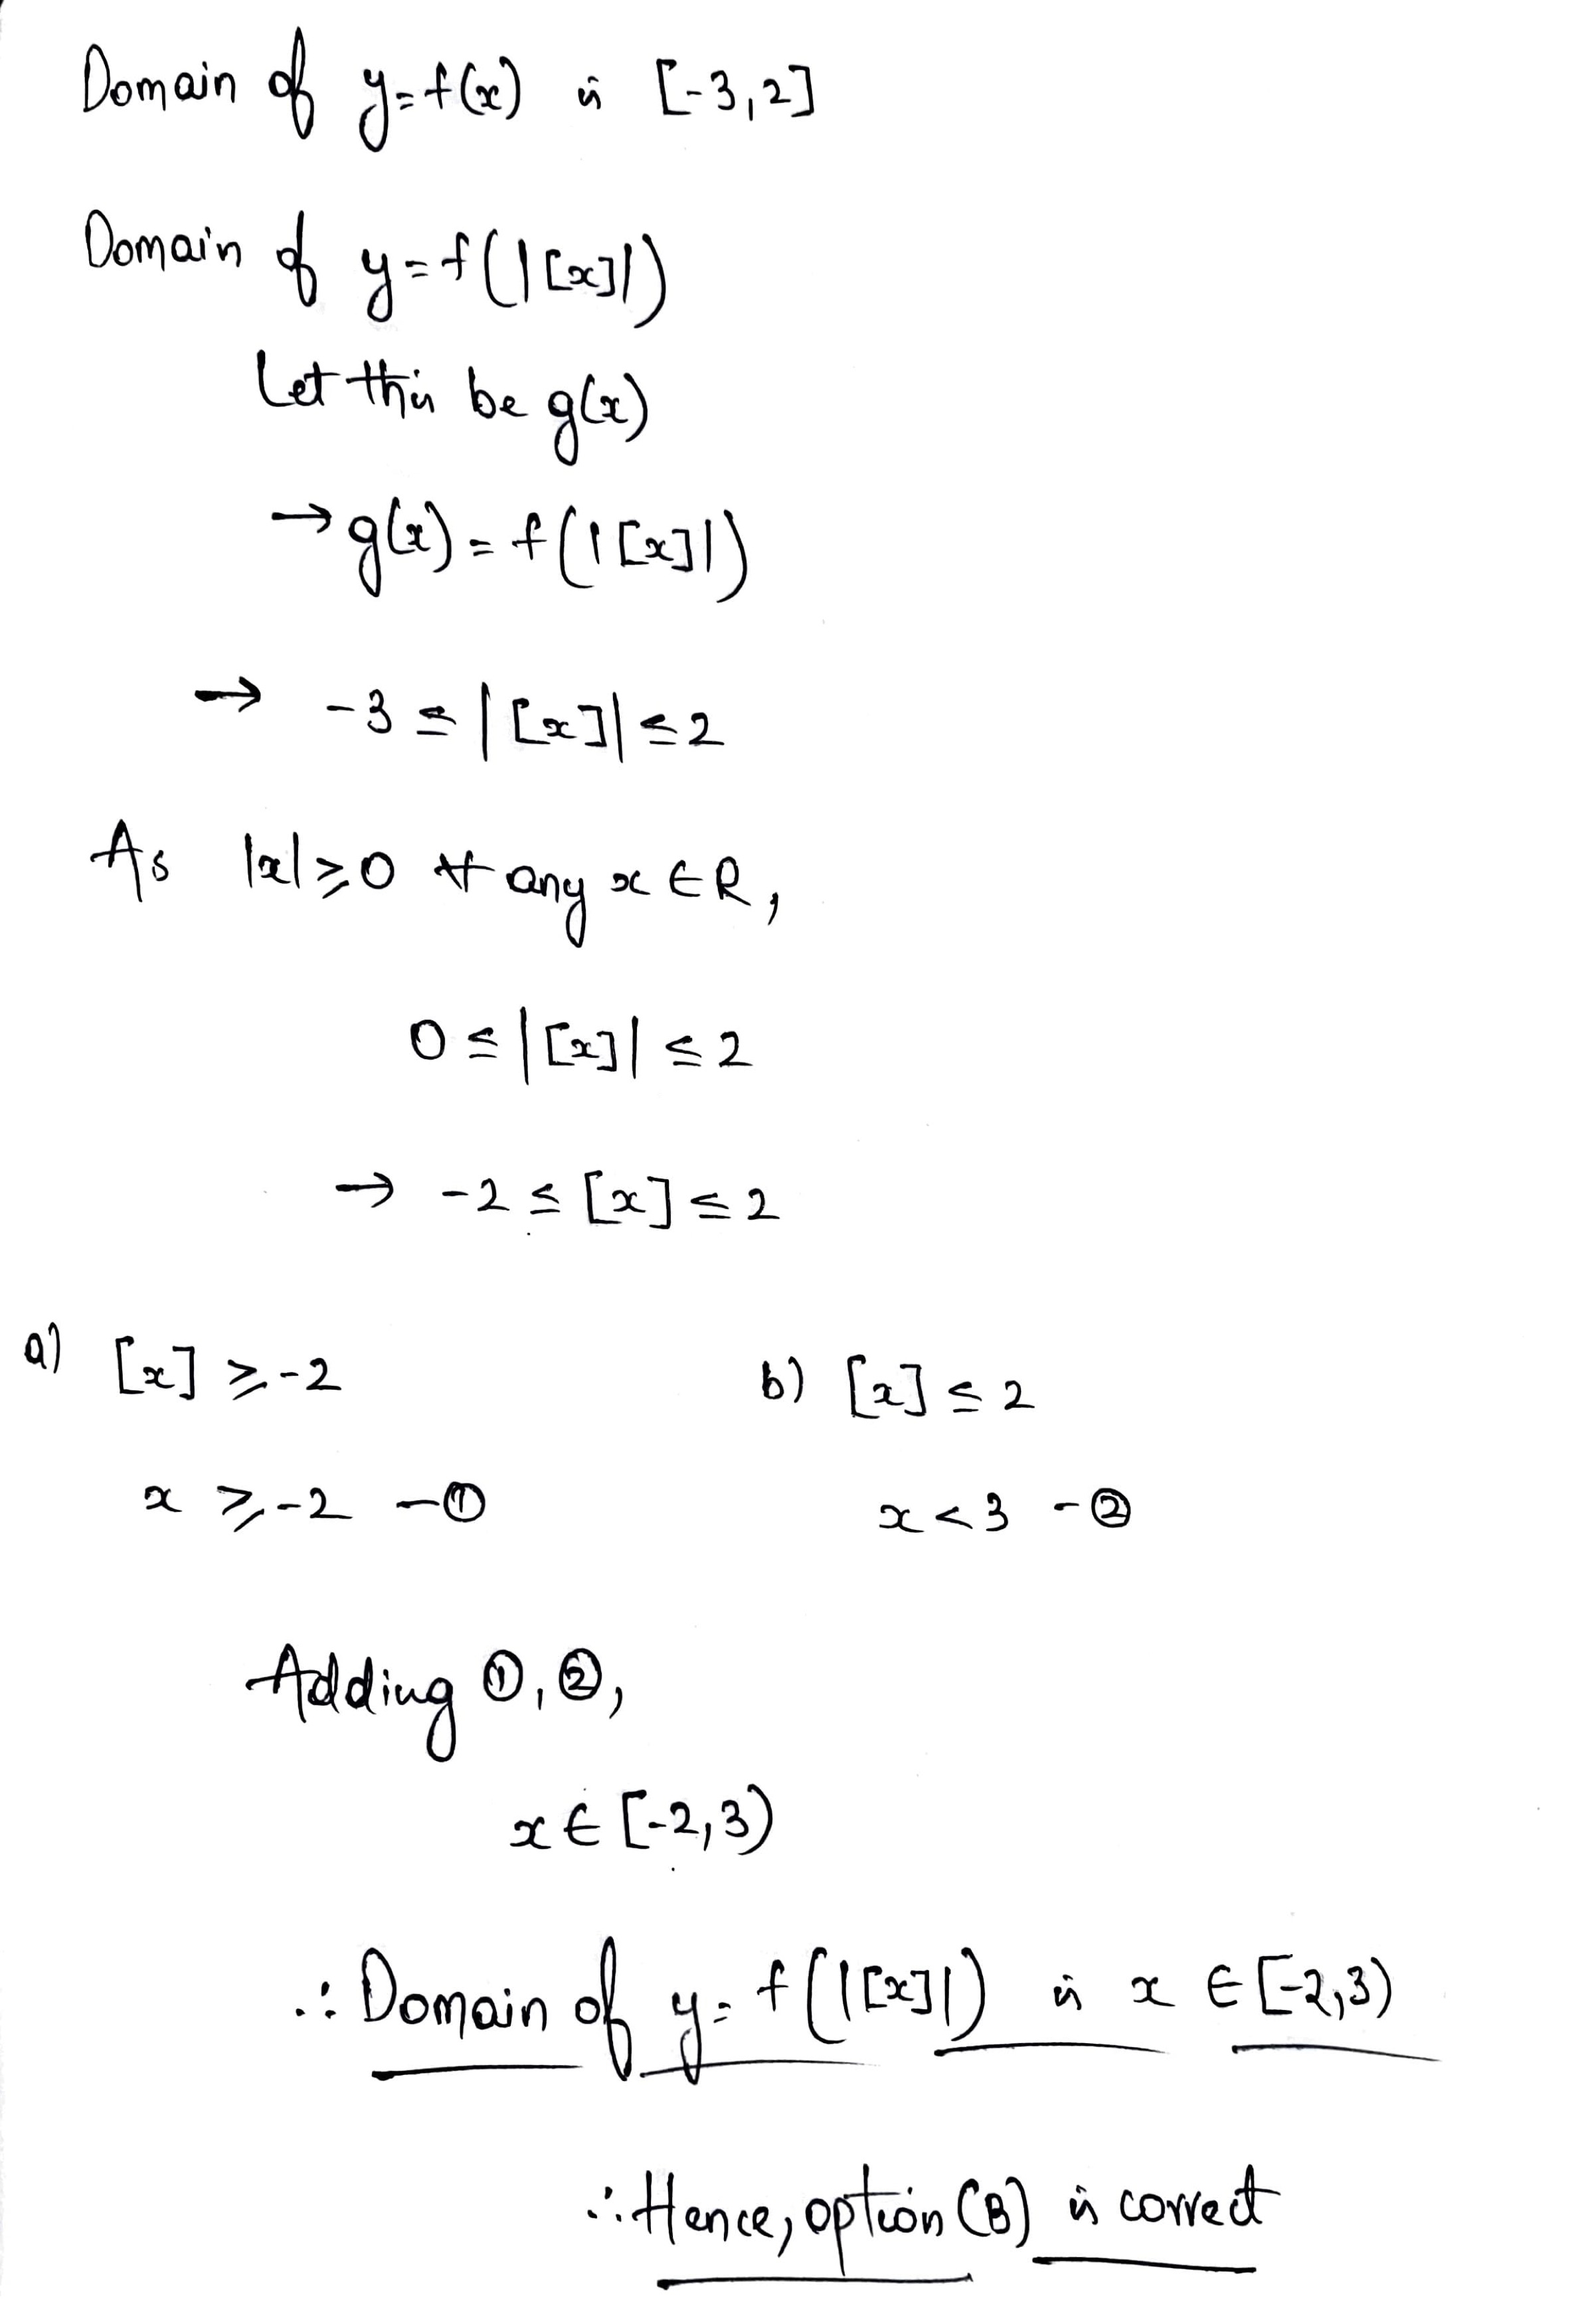 Domain of y=f(x) is [-3,2]
Domain of y=f(|[x]|)
Let this be g(x)
→ g(x) = f(|[x]|)
→ -3 ≤ |[x]| ≤ 2
As |x| ≥ 0 ∀ any x ∈ R,
0 ≤ |[x]| ≤ 2
→ -2 ≤ [x] ≤ 2
a) [x] ≥ -2 b) [x] ≤ 2
x ≥ -2 -① x < 3 -②
Adding ①, ②,
x ∈ [-2,3)
∴ Domain of y = f(|[x]|) is x ∈ [-2,3)
∴ Hence, option (B) is correct